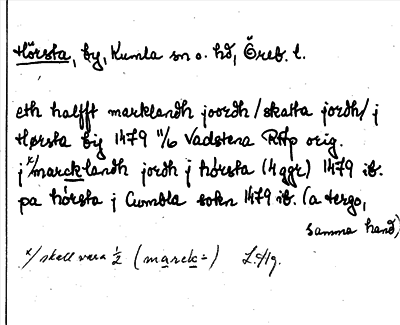 Hörsta, by, Kumla sn o. hd, Öreb. l.
eth halfft marklandh joordh /skatta jordh/ j
Hørsta by 1479 11/6 Vadstena RAp orig.
j x/marcklandh jordh j hórsta (4 ggr) 1479 ib.
pa hórsta j Cumbla sokn 1479 ib. (a tergo,
samma hand)
x/ skall vara ½ (marck÷)